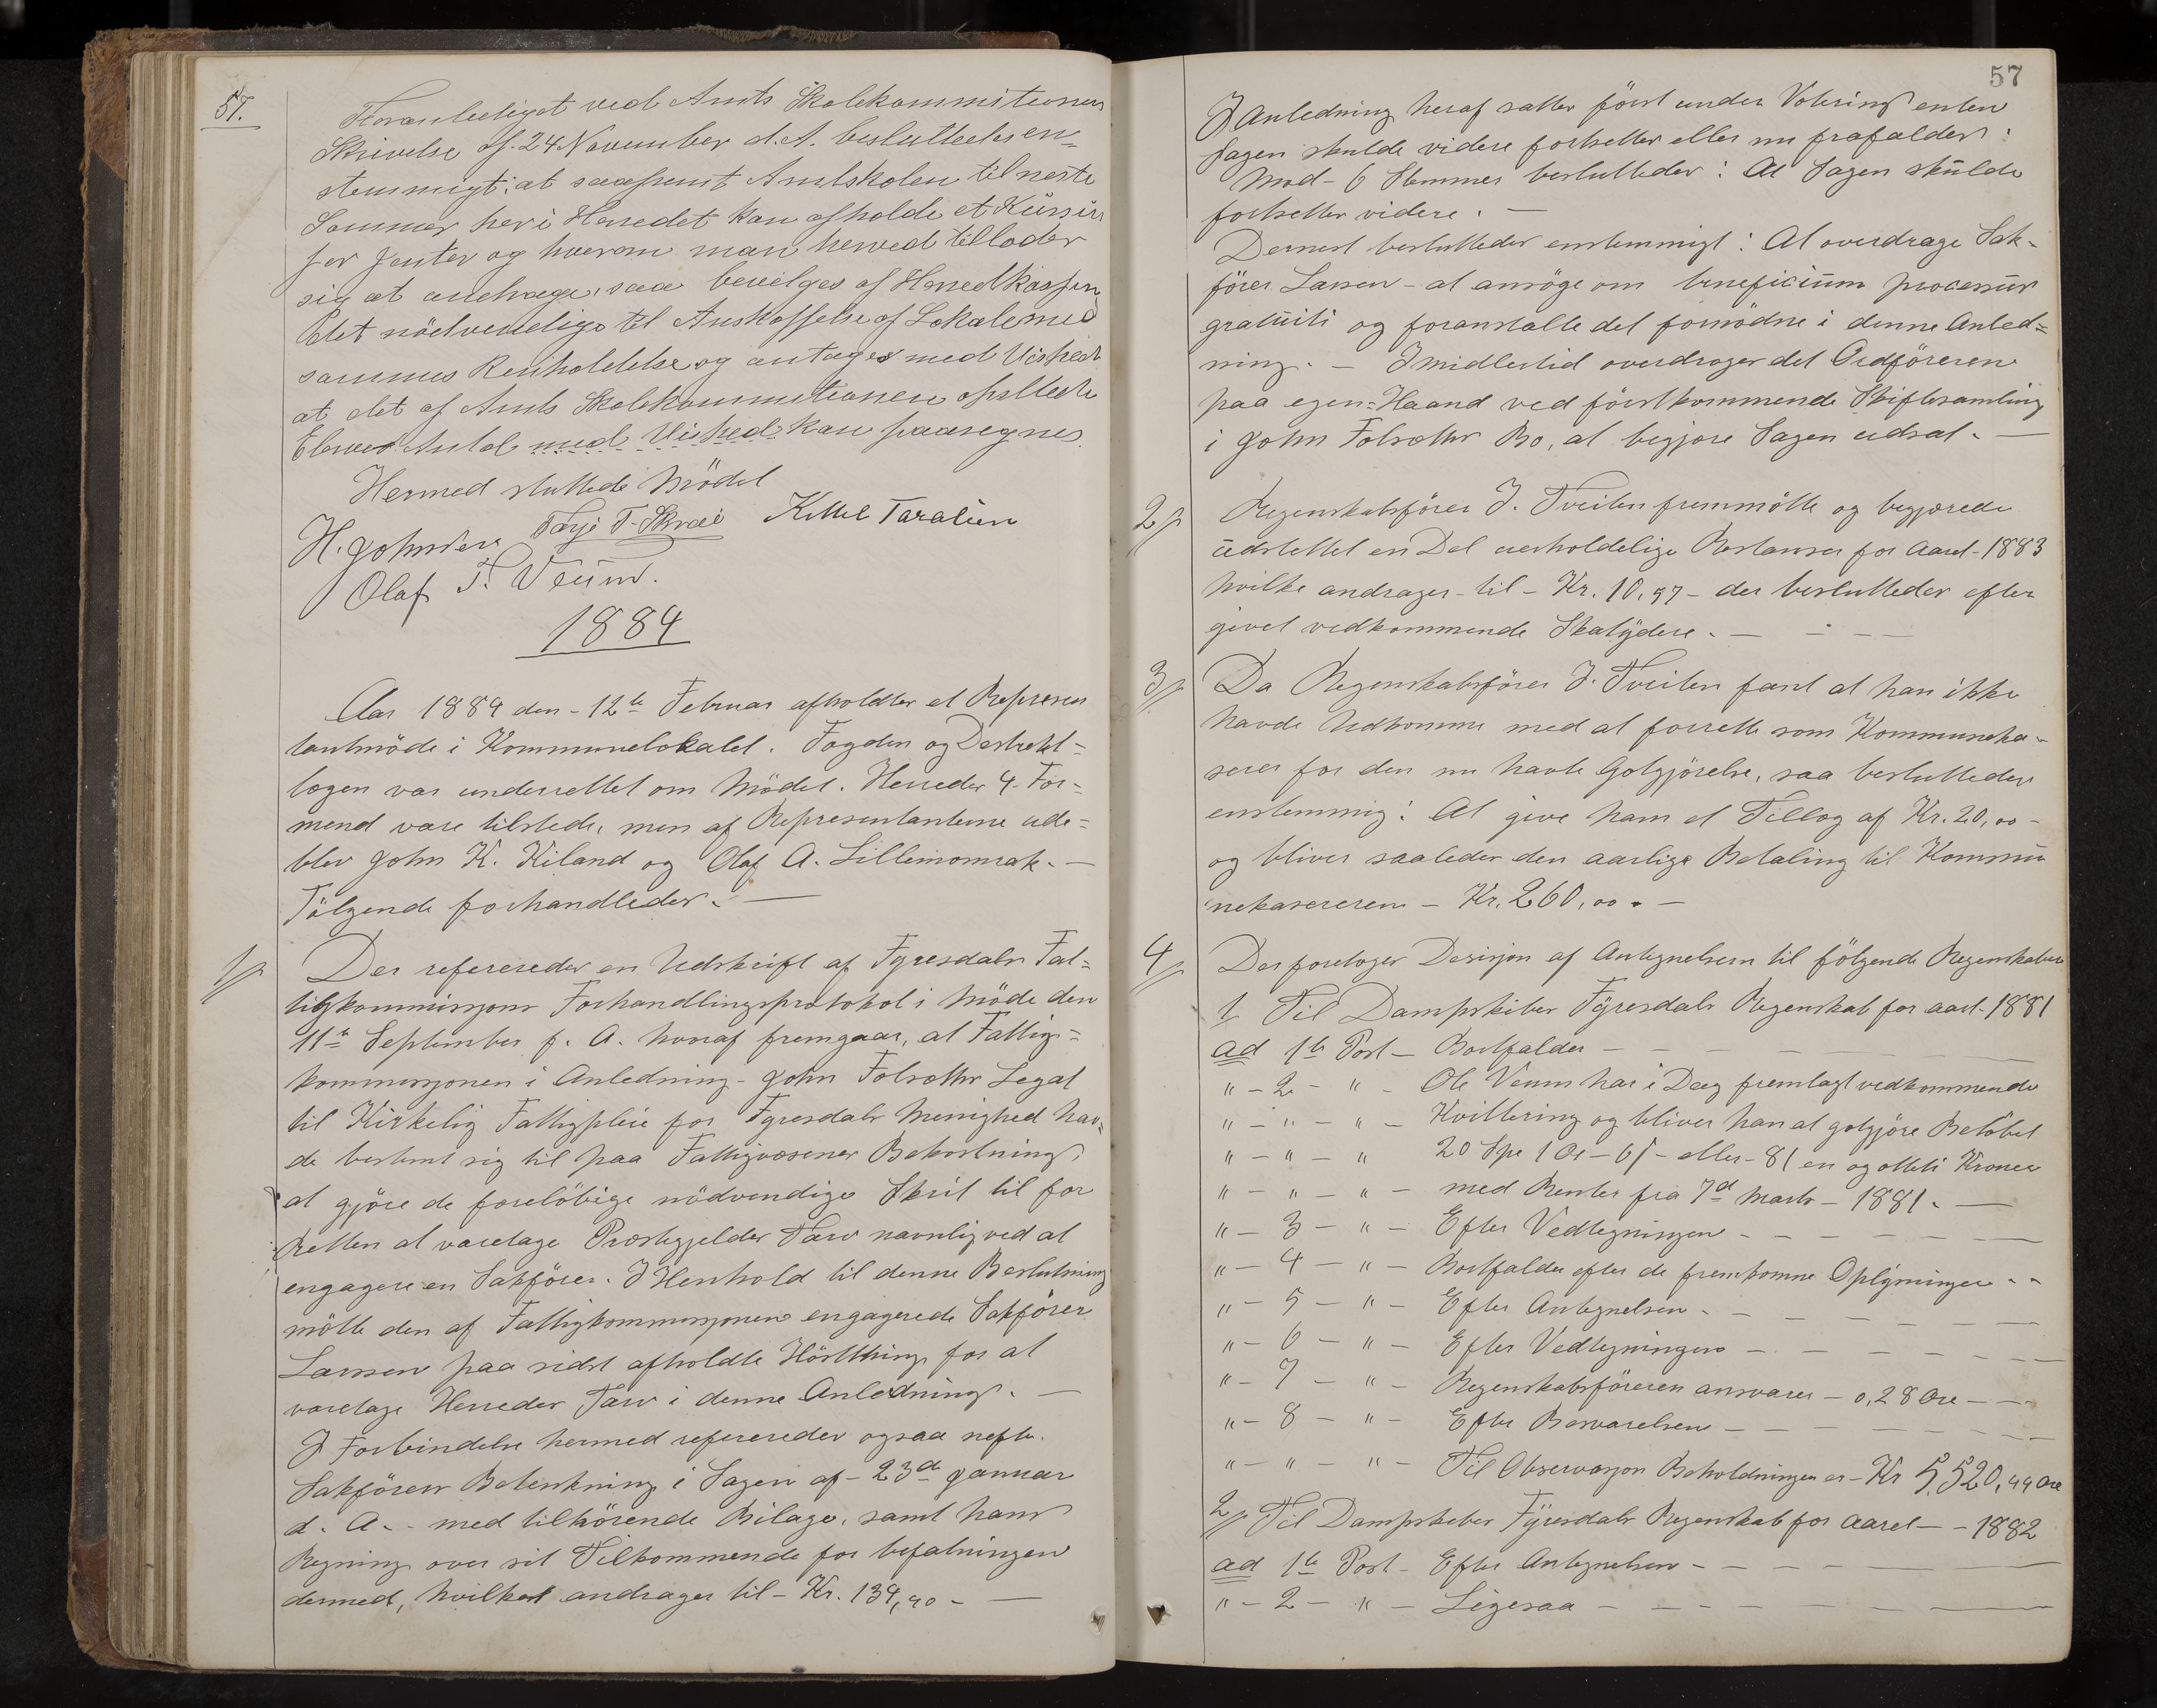 57.
Foranlediget ved Amts Skolekommitionens
Skrivelse af 24 November d.A. besluttedes en=
stemmigt: at saafremt Amtskolen til neste
Sommer her i Herredet kan afholde et Kursus
for Jenter og hvorom man herved tillader
sig at andrage, saa bevilges af Herredkassen
det nödvendige til Anskaffelse af Lokale med
sammes Renholdelse og antages med Vished
at det af Amts Skolekommitionen opsatte
Elevers Antal med Vished kan paaregnes.
Hermed sluttede Mödet
H. Johnsen Torje T. Skrei Kittel Taralien
Olaf T. Veum.
1884
Aar 1884 den - 12te Februar afholdtes et Represen
tantmöde i Kommunelokalet. Fogden og Destrekt=
lægen var underrettet om Mödet. Herredes 4 For=
mend vare tilstede, men af Representanterne ude=
blev John K. Kiland og Olaf A. Lillemomrak. —
Fölgende forhandledes. —
1/ Der refereredes en Udskrift af Fyresdals Fat=
tigkommissjons Forhandlingsprotokol i Möde den
11te September f. A. hvoraf fremgaar, at Fattig=
kommissjonen i Anledning - John Folsæthr Legat
til Kirkelig Fattigpleie for Fyresdals Menighed hav=
de bestemt sig til paa Fattigvæsenes Bekostning
at gjöre de foreløbige nödvendige Skrit til for
Retten at varetage Præstegjeldes Tarv navnlig ved at
engagere en Sakförer. I Henhold til denne Beslutning
mötte den af Fattigkommissjonen engagerede Sakförer
Larssen paa sidst afholdte Hösttthing for at
varetage Herredes Tarv i denne Anledning. —
I Forbindelse hermed refereredes ogsaa nefte.
Sakförers Betenkning i Sagen af - 23de Januar
d. A. - med tilhörende Bilage, samt hans
Regning over sit Tilkommende for befatningen
dermed, hvilket andrager til - Kr. 134,40 - —
57
I Anledning heraf sattes först under Votering enten
Sagen skulde videre fortsettes eller nu frafaldes:
Mod - 6 Stemmer besluttedes: At Sagen skulde
fortsettes videre. —
Dernest besluttedes enstemmigt: At overdrage Sak-
förer Larsen - at ansöge om beneficium processus
gratuiti og foranstalte det fornödne i denne Anled=
ning. — Imidlertid overdroges det Ordföreren
paa egen=Haand ved förstkommende Skiftesamling
i John Folsæthr Bo, at begjære Sagen udsat. —
2/ Regenskabsförer J. Tveiten fremmötte og begjærede
udslettet en Del uerholdelige Restanser for Aaret - 1883
hvilke andrager - til - Kr. 10,97 - der besluttedes efter
givet vedkommende Skatydere. —
3/ Da Regenskabsförer J. Tveiten fant at han ikke
havde Udkomme med at forrette som Kommuneka-
serer for den nu havte Gotgjörelse, saa besluttedes
enstemmig: At give ham et Tillæg af Kr. 20,00 -
og bliver saaledes den aarlige Betaling til Kommu
nekasereren - Kr. 260,00. —
4/ Der foretoges Desisjon af Antegnelsern til fölgende Regenskaber
1 Til Dampskibes Fyresdals Regenskab for aart - 1881
ad 1te Post - Bortfalder — —
" - 2 - " - Ole Veum har i Dag fremlagt vedkommende
" - " - " - Kvittering og bliver han at gotgjöre Belöbet
" - " - " 20 Spe 1 Ort - 6 s - eller - 81 en og otteti Kroner
" - " - " - med Renter fra 7d Marts - 1881. —
" - 3 - " - Efter Vedtegningen - - - - -
" - 4 - " - Bortfalder efter de fremkomne Oplysninger - -
" - 5 - " - Efter Antegnelsen - - - - -
" - 6 " - Efter Vedtegningen - - - - -
" - 7 - " - Regenskabsföreren ansvarer - 0,28 Øre - - -
" - 8 - " - Efter Besvarelsen - - - - -
" - " - " - Til Observasjon Beholdningen er - Kr 5,520,44 Øre
2/ Til Dampskibes Fyresdals Regenskab for Aaret - - 1882
ad 1te Post - Efter Antegnelsen - - - -
" - 2 - " - Ligesaa - - - - -